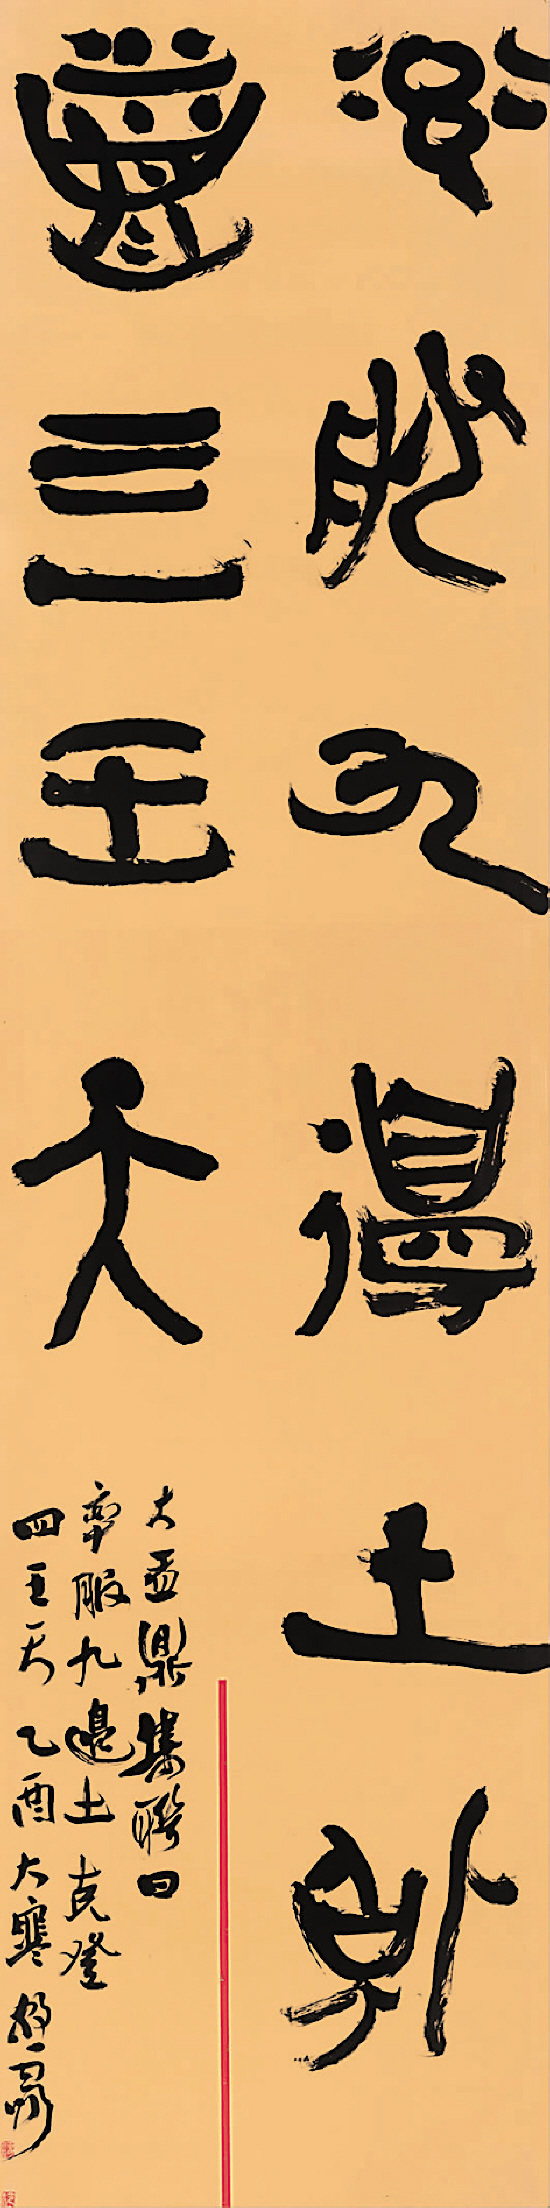 率服九邊土克
登四王天
大盂鼎集聯曰
率服九邊土克登
四王天乙酉大寒